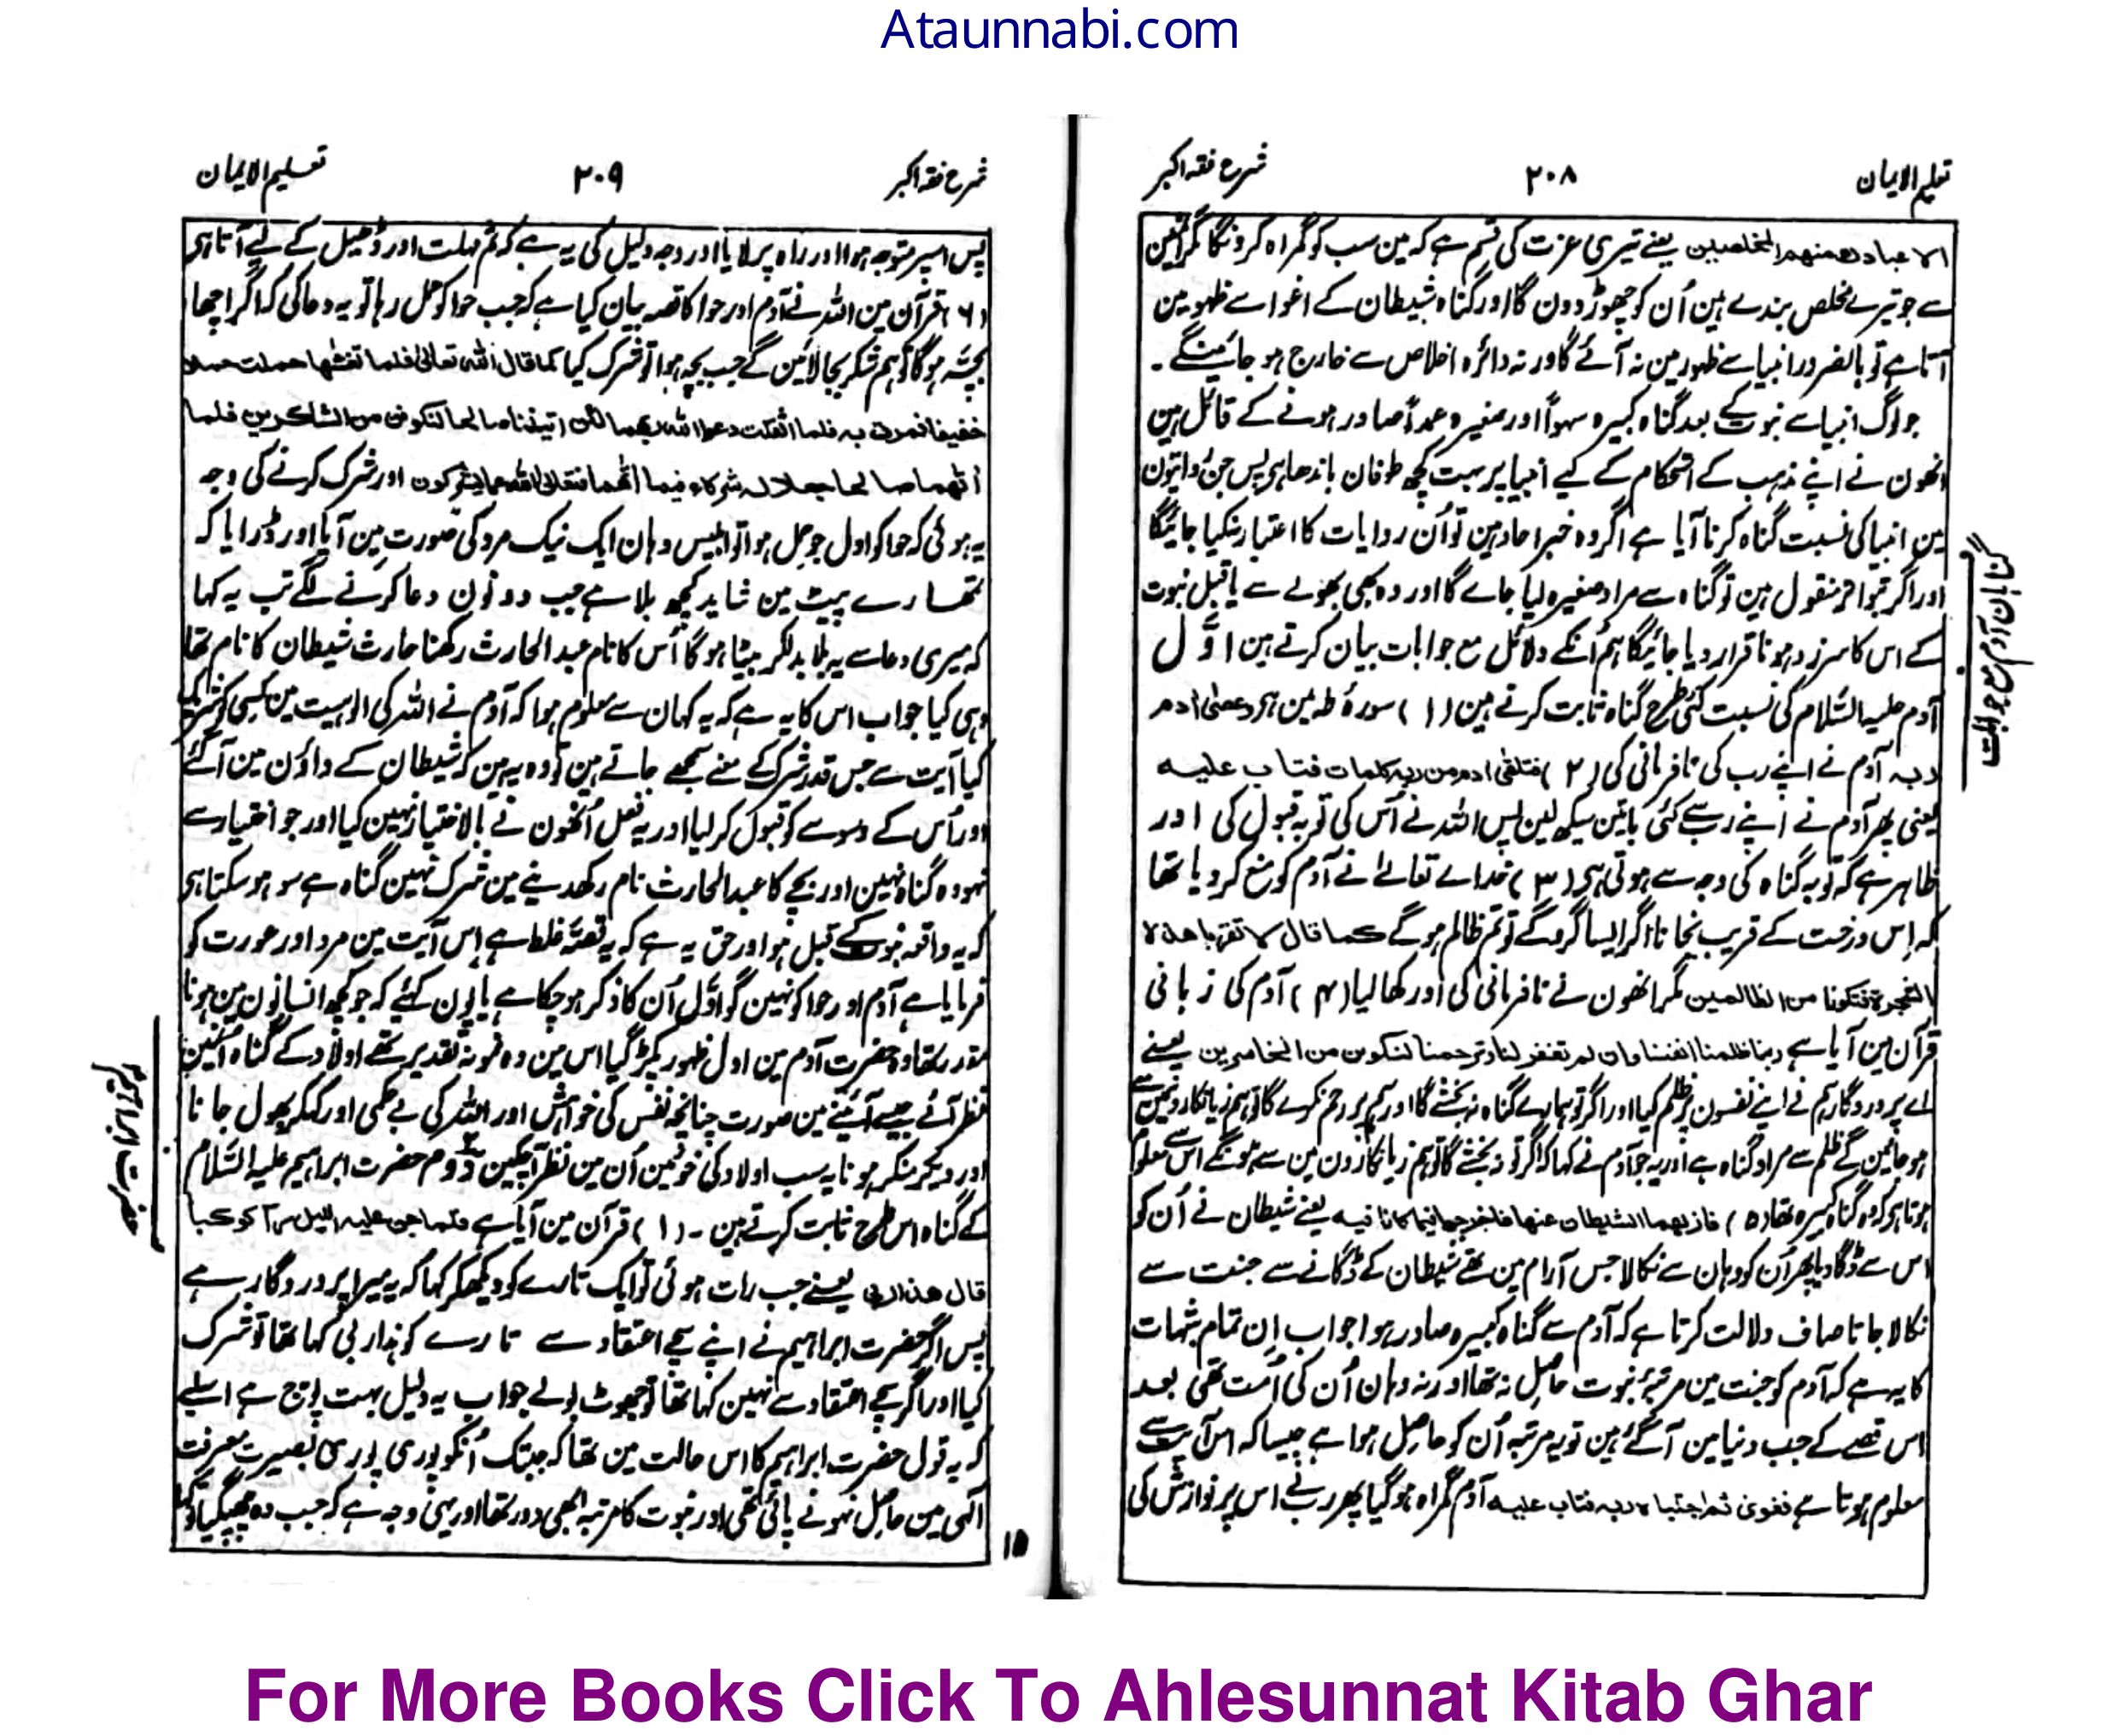 Ataunnabi.com
تعلیم الایمان ۲۰۸ شرح فقہ اکبر
الا عبادك منهم المخلصین یعنے تیری عزت کی قسم ہے کہ مین سب کو گمراہ کرونگا مگر انہین
سے جو تیرے مخلص بندے ہین اُن کو چھوڑ دون گا اور گناہ شیطان کے اغوا سے ظہور مین
آتا ہے تو بالضرور انبیا سے ظہور مین نہ آئے گا ورنہ دائرہ اخلاص سے خارج ہو جائینگے۔
جو لوگ انبیا سے نبوت کے بعد گناہ کبیرہ سہواً اور صغیرہ عمداً صادر ہونے کے قائل ہین
انھون نے اپنے مذہب کے استحکام کے لیے انبیا پر بہت کچھ طوفان باندھا ہی پس جن روایتون
مین انبیا کی نسبت گناہ کرنا آیا ہے اگر وہ خبر احاد ہین تو اُن روایات کا اعتبار نکیا جائیگا
اور اگر بتواتر منقول ہین تو گناہ سے مراد صغیرہ لیا جاے گا اور وہ بھی بھولے سے یا قبل نبوت
کے اس کا سرزد ہونا قرار دیا جائیگا ہم اُنکے دلائل مع جوابات بیان کرتے ہین اوّل
آدم علیہ السّلام کی نسبت کئی طرح گناہ ثابت کرتے ہین (۱) سورۂ طہ مین ہی وعصیٰ اٰدم
ربہ آدم نے اپنے رب کی نافرمانی کی (۲) فتلقیٰ اٰدم من ربہ کلمات فتاب علیہ
یعنی پھر آدم نے اپنے رب سے کئی باتین سیکھ لین پس اللہ نے اُس کی توبہ قبول کی اور
ظاہر ہے کہ توبہ گناہ کی وجہ سے ہوتی ہی (۳) خداے تعالےٰ نے آدم کو منع کر دیا تھا
کہ اِس درخت کے قریب نجانا اگر ایسا کروگے تو تم ظالم ہوگے کما قال لا تقربا هذہ
الشجرة فتکونا من الظالمین مگر انھون نے نافرمانی کی اور کھا لیا (۴) آدم کی زبانی
قرآن مین آیا ہے ربنا ظلمنا انفسنا وان لم تغفر لنا وترحمنا لنکونن من الخاسرین یعنے
اے پروردگار ہم نے اپنے نفسون پر ظلم کیا اور اگر تو ہمارے گناہ نہ بخشے گا اور ہم پر رحم نکرے گا تو ہم زیانکارونمین سے
ہو جائین گے ظلم سے مراد گناہ ہے اور یہ جو آدم نے کہا کہ اگر تو نہ بخشے گا تو ہم زیانکارون مین سے ہونگے اس سے معلوم
ہوتا ہی کہ وہ گناہ کبیرہ تھا (۵) فازلهما الشیطان عنها فاخرجهما مما کانا فیہ یعنے شیطان نے اُن کو
اس سے ڈگا دیا پھر اُن کو وہان سے نکالا جس آرام مین تھے شیطان کے ڈگانے سے جنت سے
نکالا جانا صاف دلالت کرتا ہے کہ آدم سے گناہ کبیرہ صادر ہوا جواب اِن تمام شبہات
کا یہ ہے کہ آدم کو جنت مین مرتبۂ نبوت حاصل نہ تھا اور نہ وہان اُن کی اُمت تھی بعد
اس قصے کے جب دنیا مین آ گئے ہین تو یہ مرتبہ اُن کو حاصل ہوا ہے جیسا کہ اس آیت سے
معلوم ہوتا ہے فغویٰ ثم اجتباہ ربہ فتاب علیہ آدم گمراہ ہو گیا پھر رب نے اس پر نوازش کی
گناہان آدم مع جوابات
شرح فقہ اکبر ۲۰۹ تعلیم الایمان
پس اسپر متوجہ ہوا اور راہ پر لایا اور وجہ دلیل کی یہ ہے کہ ثم مہلت اور ڈھیل کے لیے آتا ہی
(۶) قرآن مین اللہ نے آدم اور حوا کا قصہ بیان کیا ہے کہ جب حوا کو حمل رہا تو یہ دعا کی کہ اگر اچھا
بچہ ہوگا تو ہم شکر بجا لائین گے جب بچہ ہوا تو شرک کیا کما قال اللہ تعالیٰ فلما تغشها حملت حملا
خفیفا فمرت بہ فلما اثقلت دعوا اللہ ربهما لئن اٰتیتنا صالحا لنکونن من الشاکرین فلما
اٰتهما صالحا جعلا لہ شرکاء فیما اٰتهما فتعالیٰ اللہ عما یشرکون اور شرک کرنے کی وجہ
یہ ہوئی کہ حوا کو اول جو حمل ہوا تو ابلیس وہان ایک نیک مرد کی صورت مین آیا اور ڈرایا کہ
تمھارے پیٹ مین شاید کچھ بلا ہے جب دونون دعا کرنے لگے تب یہ کہا
کہ میری دعا سے یہ بلا بدلکر بیٹا ہوگا اُس کا نام عبد الحارث رکھنا حارث شیطان کا نام تھا
وہی کیا جواب اس کا یہ ہے کہ یہ کہان سے معلوم ہوا کہ آدم نے اللہ کی الوہیت مین کسی کو شریک
کیا آیت سے جس قدر شرک کے معنے سمجھے جاتے ہین تو وہ یہ ہین کہ شیطان کے داؤن مین آ گئے
اور اُس کے وسوسے کو قبول کر لیا اور یہ فعل اُنھون نے بالاختیار نہین کیا اور جو اختیار سے
نہو وہ گناہ نہین اور بچے کا عبد الحارث نام رکھدینے مین شرک نہین گناہ ہے سو ہو سکتا ہی
کہ یہ واقعہ نبوت کے قبل ہو اور حق یہ ہے کہ یہ قصہ غلط ہے اِس آیت مین مرد اور عورت کو
فرمایا ہے آدم اور حوا کو نہین گو اوّل اُن کا ذکر ہو چکا ہے یا یون کہئے کہ جو کچھ انسانون مین ہونا
مقدر تھا وہ حضرت آدم مین اول ظہور پکڑ گیا اس مین وہ نمونۂ تقدیر تھے اولاد کے گناہ اُنہین
نظر آئے جیسے آئینے مین صورت چنانچہ نفس کی خواہش اور اللہ کی بے حکمی اور کہکر بھول جانا
اور دیکر منکر ہونا یہ سب اولاد کی خوئین اُن مین نظر آ چکین دوم حضرت ابراہیم علیہ السّلام
کے گناہ اس طرح ثابت کرتے ہین۔ (۱) قرآن مین آیا ہے فلما جن علیہ اللیل راٰ کوکبا
قال هذا ربی یعنے جب رات ہوئی تو ایک تارے کو دیکھکر کہا کہ یہ میرا پروردگار ہے
پس اگر حضرت ابراہیم نے اپنے سچے اعتقاد سے تارے کو ہٰذا ربی کہا تھا تو شرک
کیا اور اگر سچے اعتقاد سے نہین کہا تھا تو جھوٹ بولے جواب یہ دلیل بہت پوچ ہے اسلیے
کہ یہ قول حضرت ابراہیم کا اس حالت مین تھا کہ جبتک اُنکو پوری پوری بصیرت معرفت
الٰہی مین حاصل نہونے پائی تھی اور نبوت کا مرتبہ ابھی دور تھا اور یہی وجہ ہے کہ جب وہ چھپ گیا تو کہا
حضرت ابراہیم
۱۵
For More Books Click To Ahlesunnat Kitab Ghar